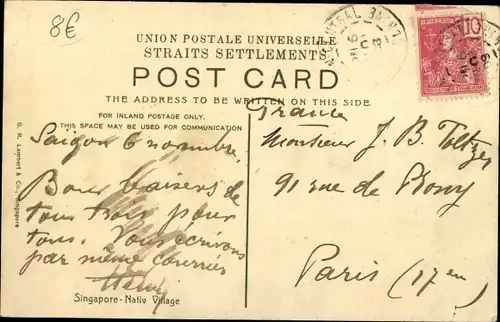 8€
UNION POSTALE UNIVERSELLE
STRAITS SETTLEMENTS
POST CARD
THE ADDRESS TO BE WRITTEN ON THIS SIDE.
FOR INLAND POSTAGE ONLY.
THIS SPACE MAY BE USED FOR COMMUNICATION
G. R. Lambert & Co., Singapore
Saigon 6 novembre.
Bons baisers de
tous trois pour
tous. Vous écrivons
par même courrier
Singapore - Nativ Village
10
France
Monsieur J. B.
91 rue de Prony
Paris (17em)